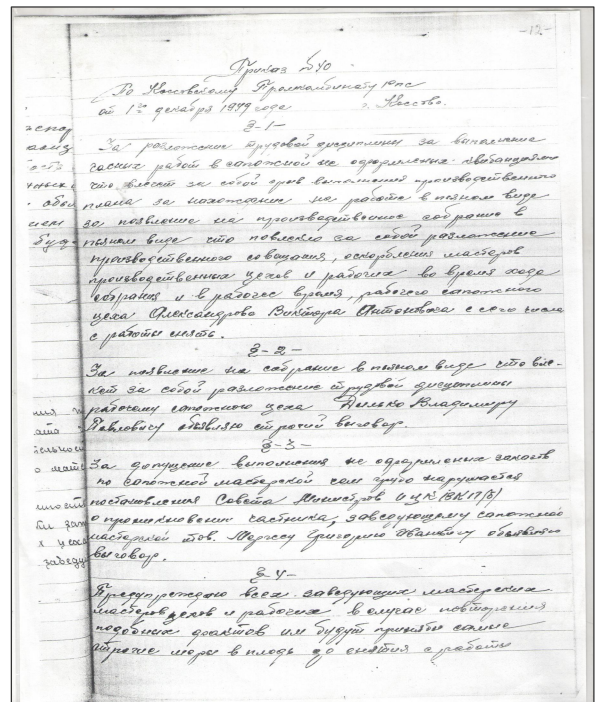 -12-
Приказ №40
По Коссовскому Промкомбинату
от 1го декабря 1949 года г. Коссово.
§-1-
За разложение трудовой дисциплины за выполнение
часных работ в сапожной не одормленых квитанциями
что влечет за собой срыв выполнения производственного
плана за нахождение на работе в пьяном виде
за появление на производственное собрание в
пьяном виде что повлекло за собой разложение
производственного совещания, оскорбления мастеров
производственных цехов и рабочих во время хода
собрания и в рабочее время, рабочего сапожного
цеха Александрова Виктора Антоновича с сего числа
с работы снять.
§-2-
За появление на собрание в пьяном виде что вле-
кет за собой разложение трудовой дисциплины
рабочему сапожного цеха Владимиру
Павловичу объявляю строгий выговор.
§-3-
За допущение выполнения не одормленых заказов
по сапожной мастерской сам грубо нарушается
постановления Совета Министров и ЦК ВКП/б/
о проникновении частника, заведующему сапожной
мастерской тов. Григорию Ивановичу объявить
выговор.
§-4-
Предупреждаю всех заведующих мастерских
мастеров цехов и рабочих в случае повторения
подобных фактов им будут приняты самые
строгие меры в плодь до снятия с работы